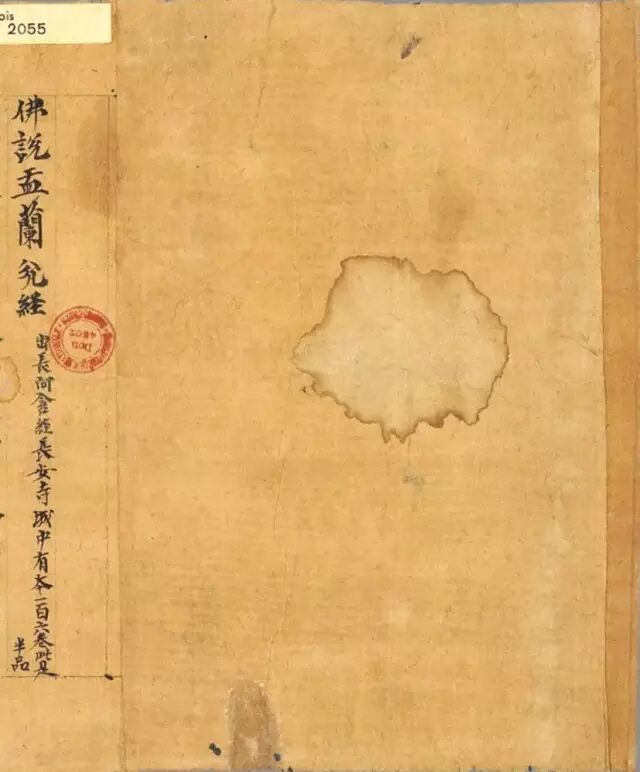 ois
2055
佛說盂蘭瓫經
出長阿含經長安寺城中有本一百六卷此是
半品
Don
4502